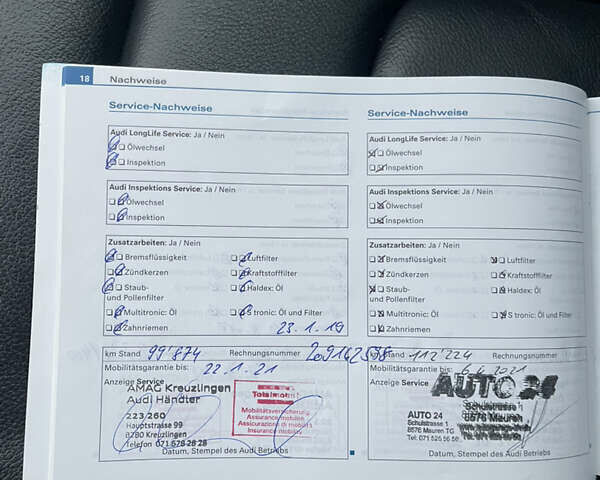 18 Nachweise
Service-Nachweise
Audi LongLife Service: Ja / Nein
Ölwechsel
Inspektion
Audi Inspektions Service: Ja / Nein
Ölwechsel
Inspektion
Zusatzarbeiten: Ja / Nein
Bremsflüssigkeit Luftfilter
Zündkerzen Kraftstofffilter
Staub- Haldex: Öl
und Pollenfilter
Multitronic: Öl S tronic: Öl und Filter
Zahnriemen 23.1.19
km Stand 99'874 Rechnungsnummer 209162598
Mobilitätsgarantie bis: 22.1.21
Anzeige Service
AMAG Kreuzlingen
Audi Händler
223/260
Hauptstrasse 99
8280 Kreuzlingen
Telefon 071 678 28 28
Totalmobil!
Mobilitätsversicherung
Assurance mobilité
Assicurazione di mobilità
Insurance mobility
Datum, Stempel des Audi Betriebs
Service-Nachweise
Audi LongLife Service: Ja / Nein
Ölwechsel
Inspektion
Audi Inspektions Service: Ja / Nein
Ölwechsel
Inspektion
Zusatzarbeiten: Ja / Nein
Bremsflüssigkeit Luftfilter
Zündkerzen Kraftstofffilter
Staub- Haldex: Öl
und Pollenfilter
Multitronic: Öl S tronic: Öl und Filter
Zahnriemen
km Stand 112'224 Rechnungsnummer
Mobilitätsgarantie bis: 2021
Anzeige Service
AUTO 24
Schulstrasse
8576 Mauren
AUTO 24
Schulstrasse 1
8576 Mauren TG
Datum, Stempel des Audi Betriebs